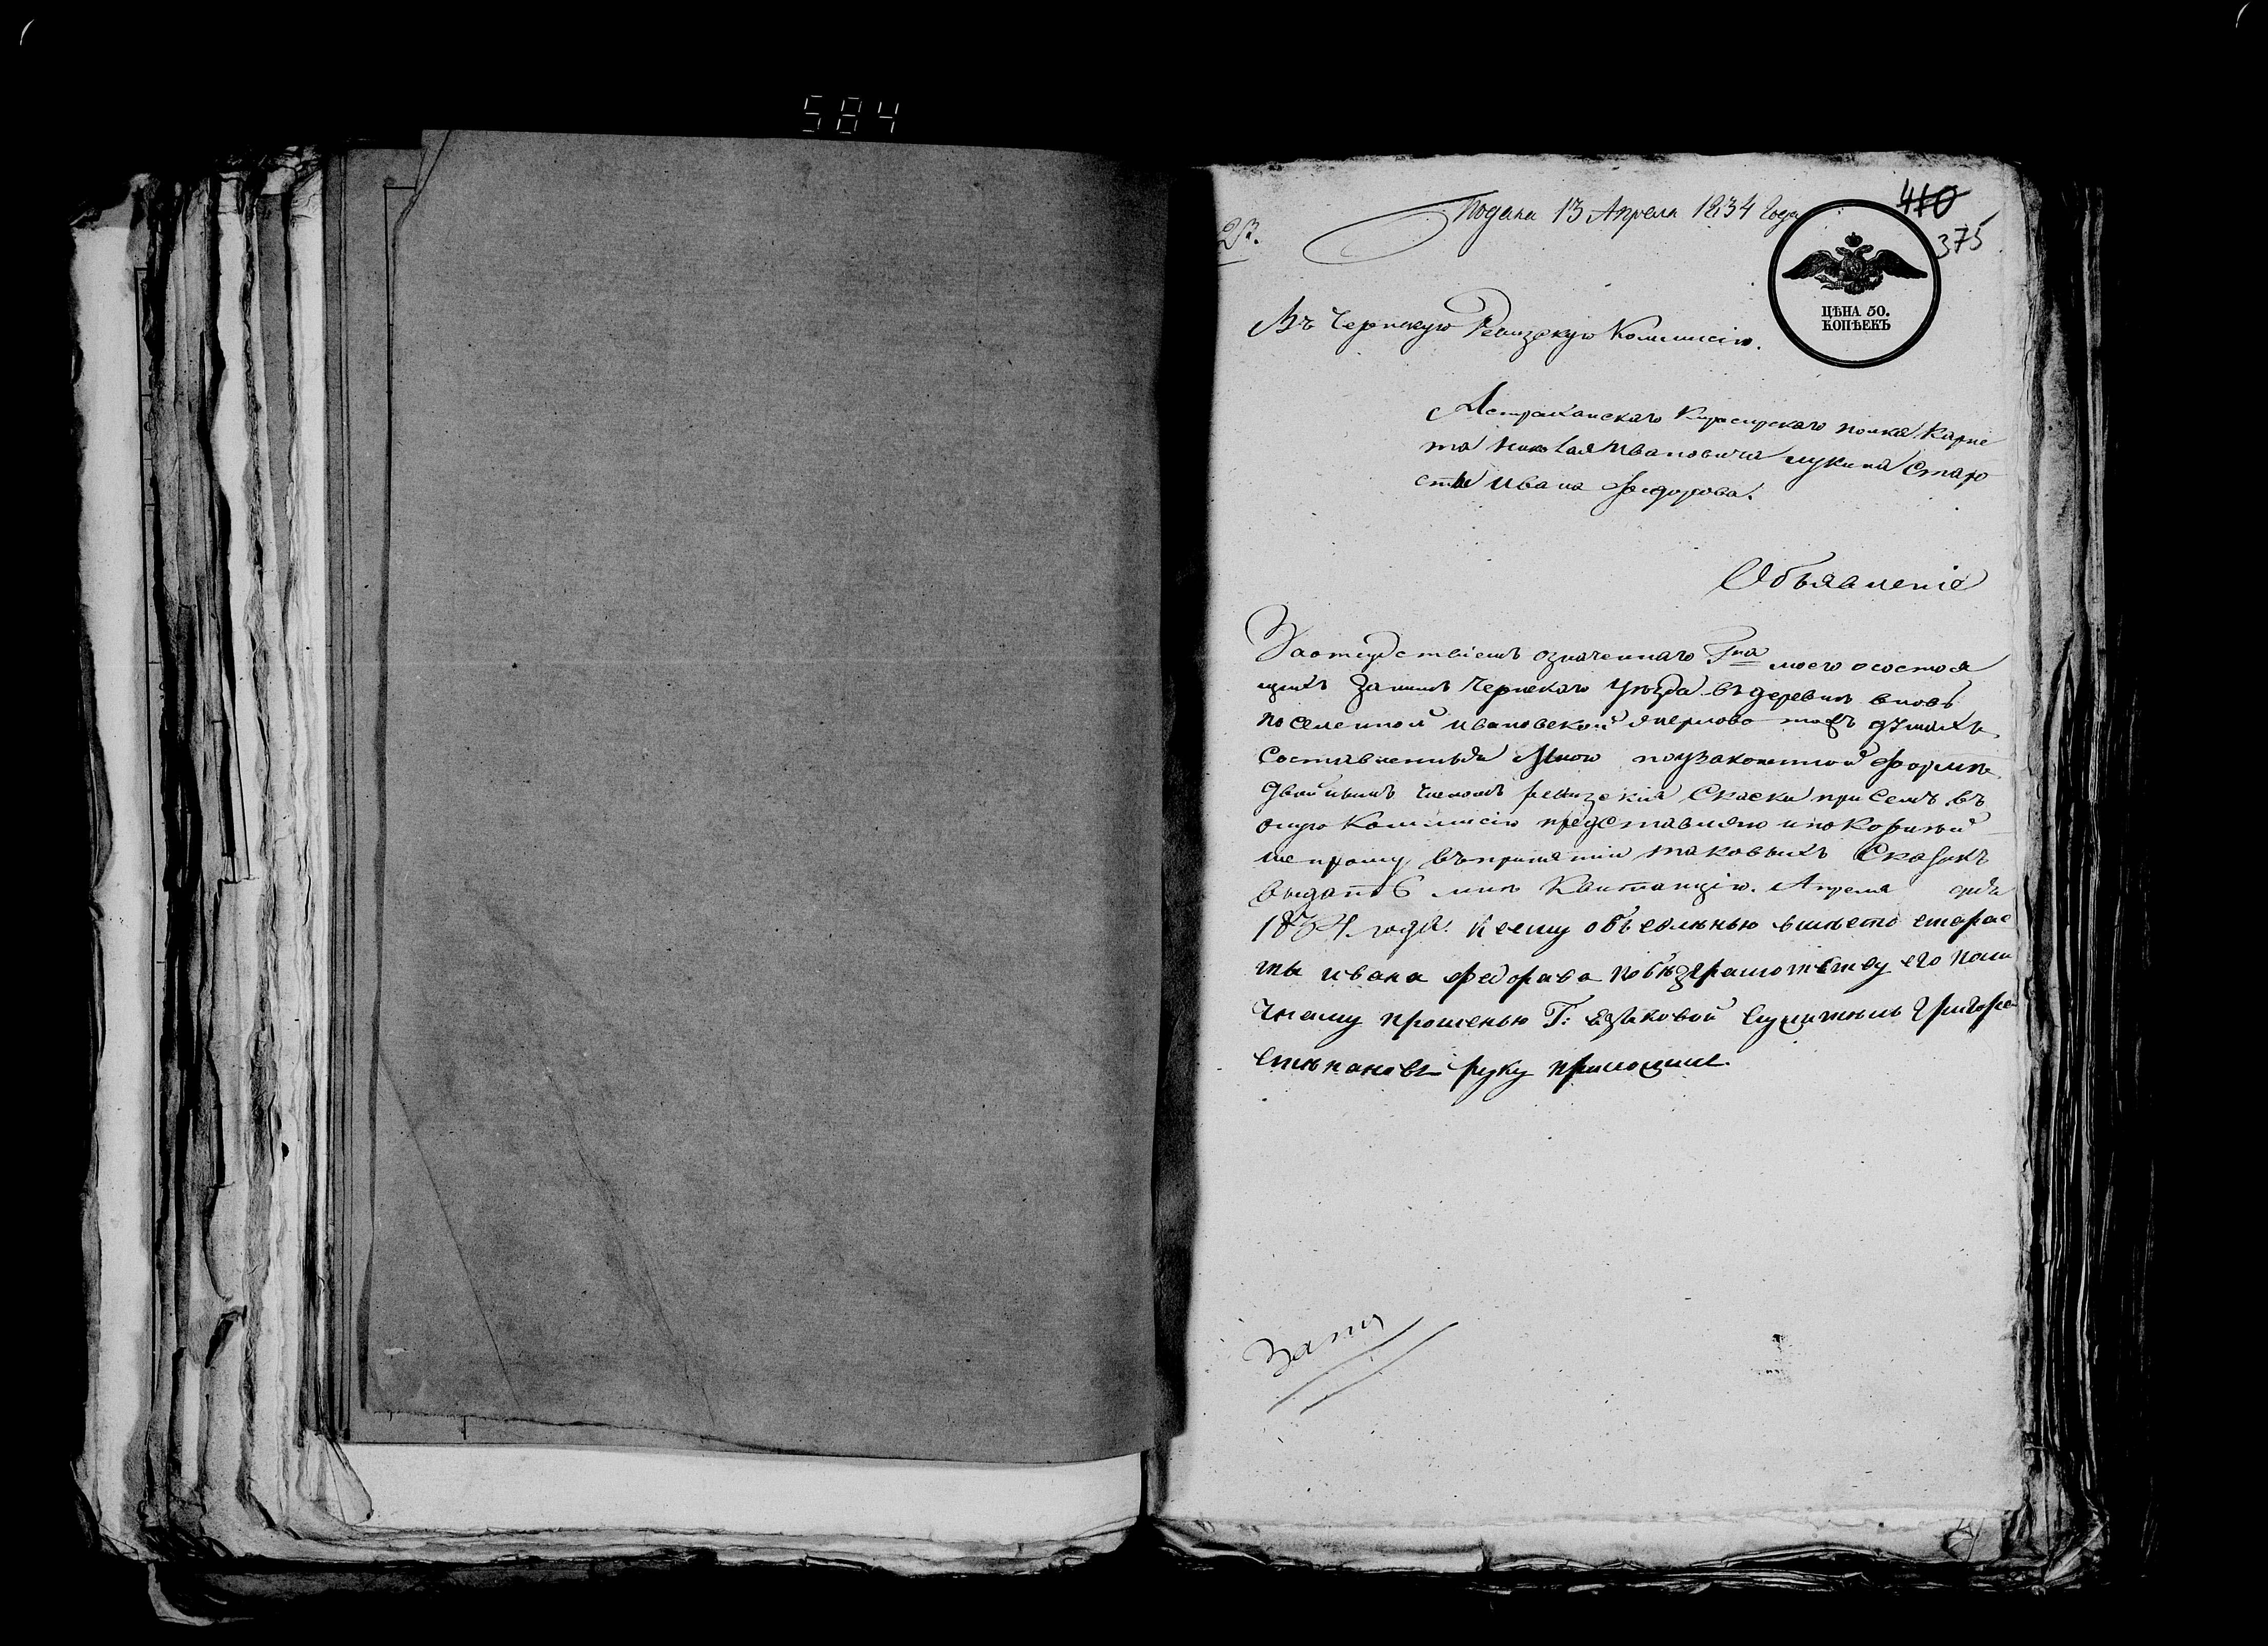 584
Подана 13 Апреля 1834 Года
410
375
23.
ЦѢНА 50.
КОПѢЕКЪ
Въ Чернскую Ревизскую Коммисію.
Астраханскаго Кирасирскаго полка Карне
та Николая Ивановича Лукина Старо
сты Ивана Федорова.
Объявленіе
Заотсудствіемъ означеннаго Гна моего осостоя
щихъ занимъ Чернскаго Уѣзда въ деревнѣ вновь
поселенной Ивановской душахъ
Составленныя Мною поузаконенной формѣ
двойнымъ числомъ ревизскія Скаски при Семъ въ
оную Коммисію представляю и покорнѣй
ше прошу, въпринятіи таковыхъ Сказокъ
выдать мнѣ Квитанцію. Апреля дня
1834 года. К сему объевленью вместо старос
ты ивана федорава по его поли
чнаму прошенью Г: езыковой служитель Григорей
степановъ руку приложил.